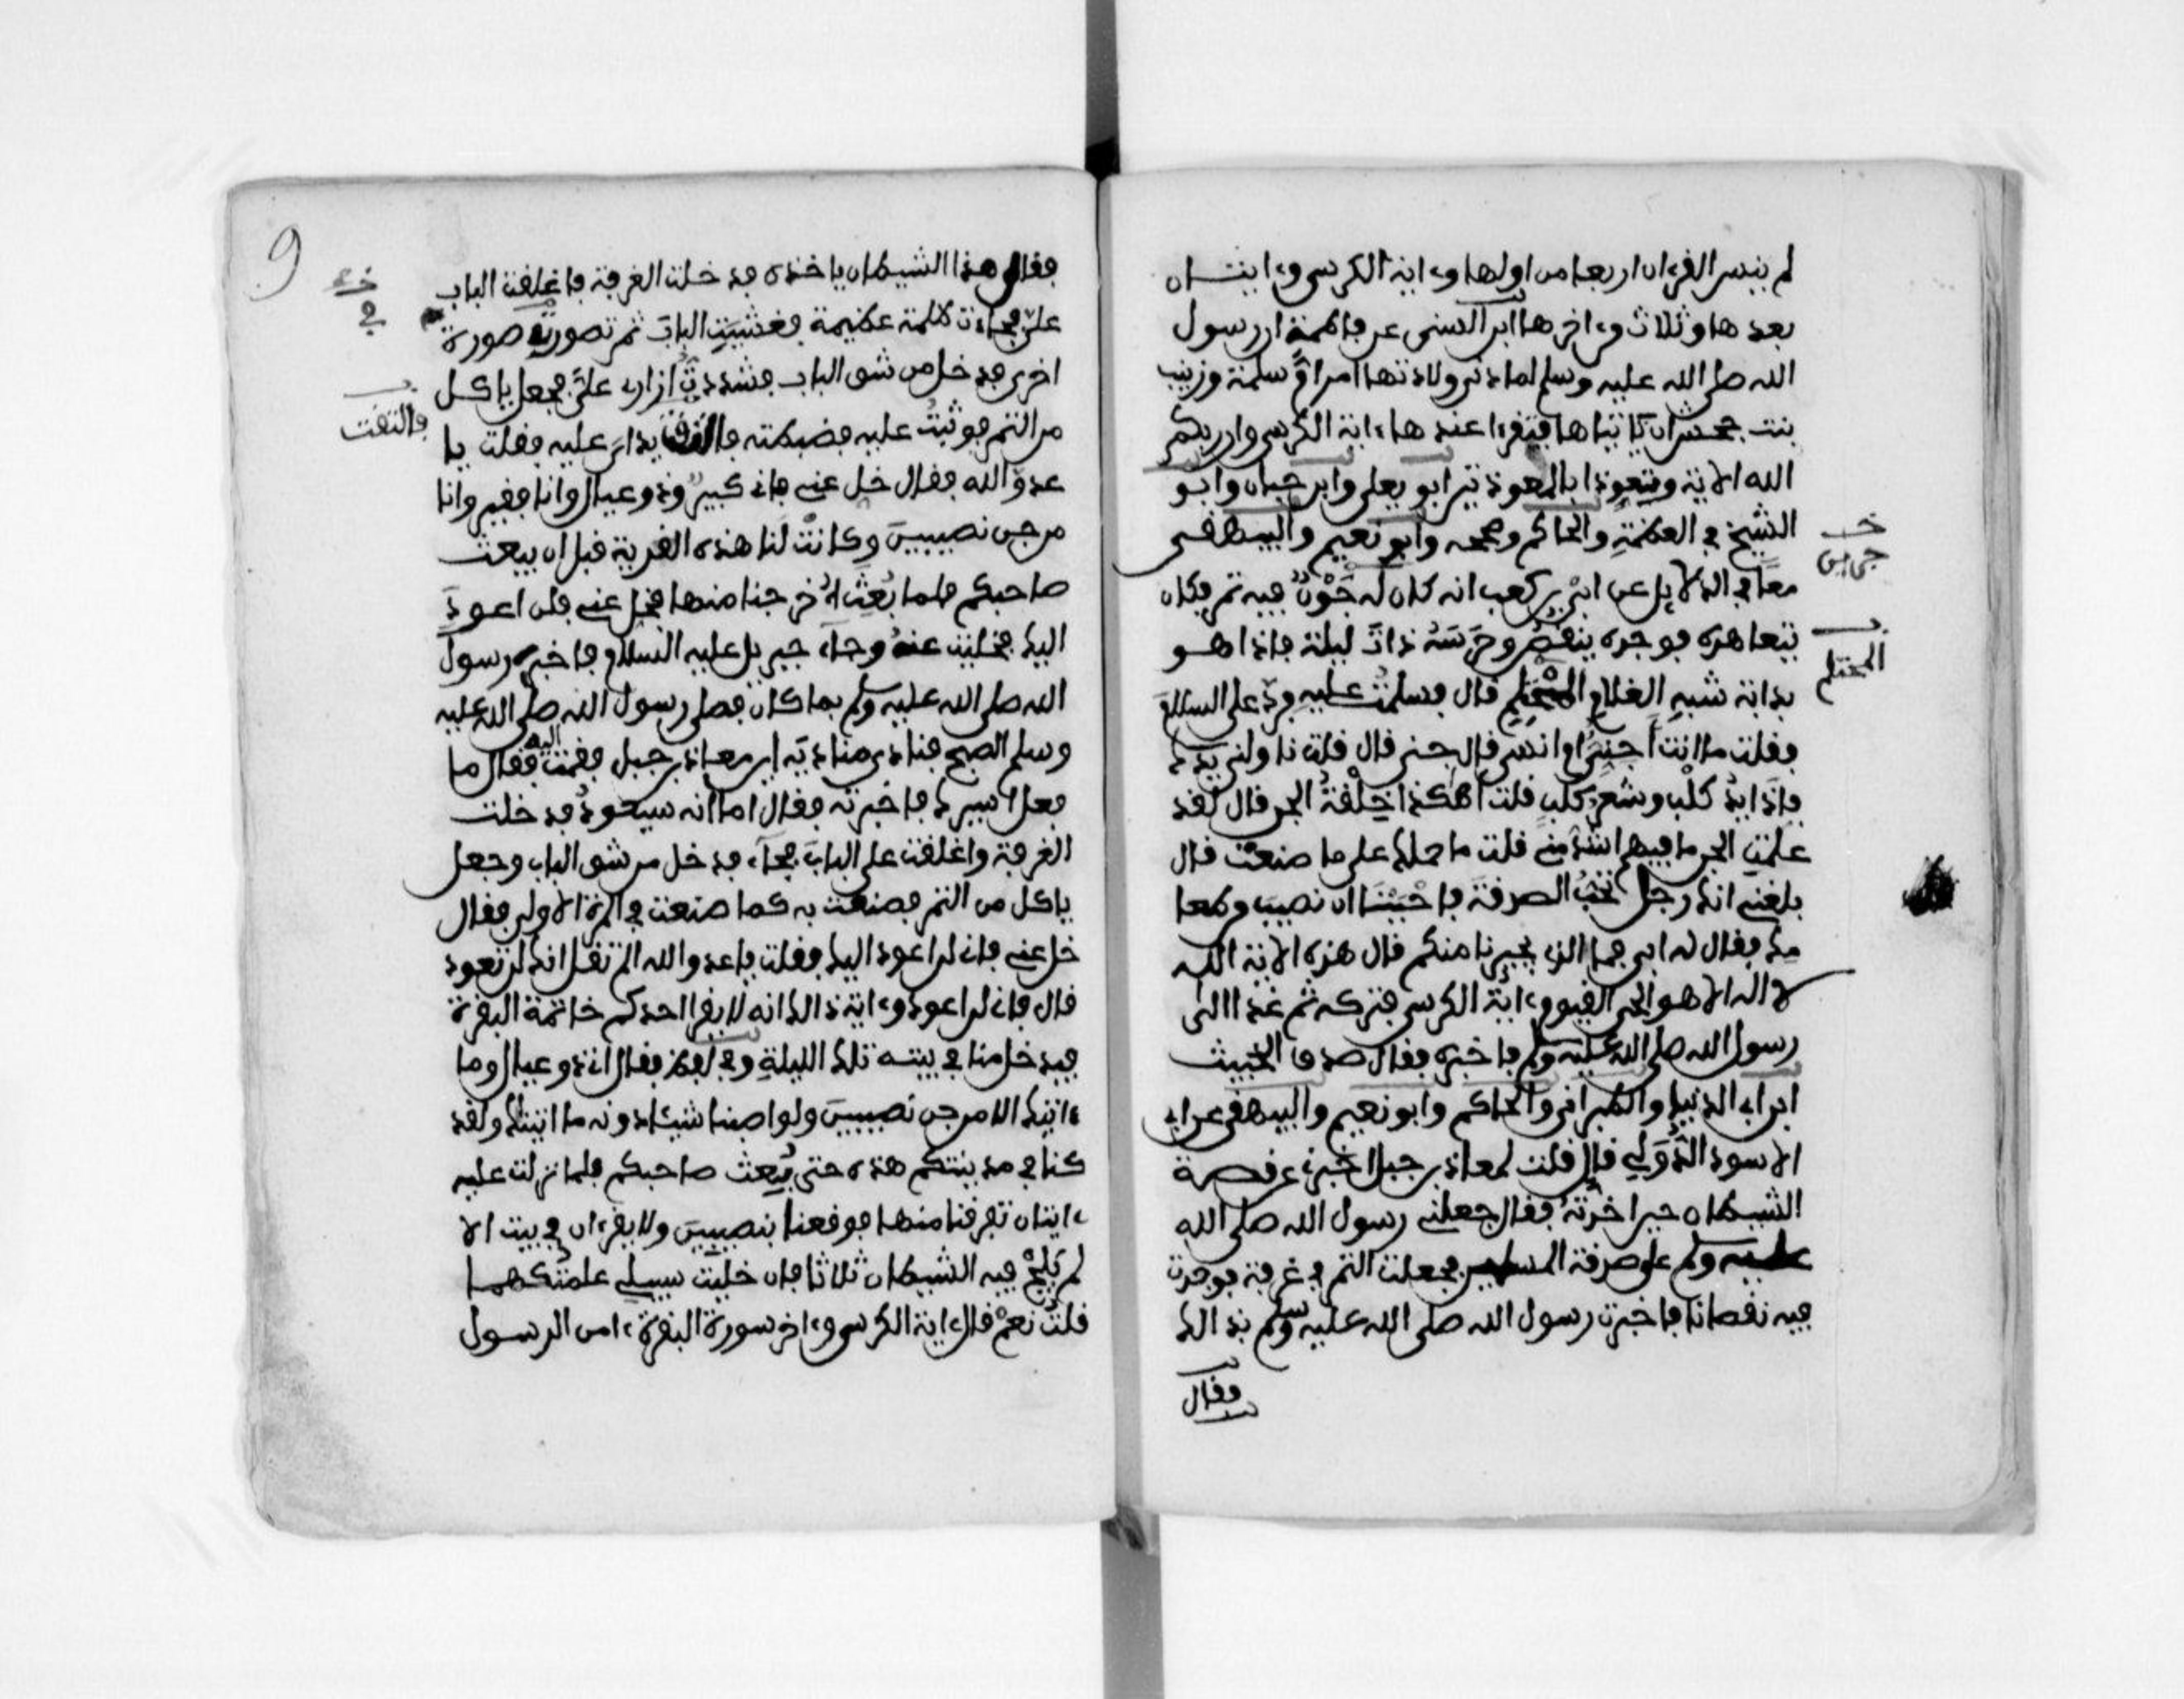 لم ينس القرءان اربعا من اولها وءاية الكرسي وءايتان
بعدها وثلاث من ءاخرها ابن السني عن فاطمة ان رسول
الله صلى الله عليه وسلم لما دنى ولادتها امر ام سلمة وزينب
بنت جحش ان تاتياها فتقرءا عندها ءاية الكرسي وان ربكم
الله الاية وتعوذاها بالمعوذتين ابو يعلى وابن حبان وابو
الشيخ في العظمة والحاكم وصححه وابو نعيم والبيهقي
معا في الدلايل عن ابي بن كعب انه كان له جرن فيه تمر فكان
يتعاهده فوجده ينقص فحرسه ذات ليلة فاذا هو
بدابة شبه الغلام المحتلم قال فسلمت عليه فرد علي السلام
فقلت ما انت أجني او انسي قال جني قال قلت ناولني يدك
فإذا يد كلب وشعر كلب قلت أهكذا خلقة الجن قال لقد
علمت الجن ما فيهم اشد مني قلت ما حملك على ما صنعت قال
بلغني انك رجل تحب الصدقة فاحببنا ان نصيب من طعا
مك فقال له ابي فما الذي يجيرنا منكم قال هذه الاية الله
لا اله الا هو الحي القيوم ءاية الكرسي فتركه ثم غدا الى
رسول الله صلى الله عليه وسلم فاخبره فقال صدق الخبيث
ابن ابي الدنيا والطبراني والحاكم وابو نعيم والبيهقي عن ابي
الاسود الدؤلي قال قلت لمعاذ بن جبل اخبرني عن قصة
الشيطان حين اخذته فقال جعلني رسول الله صلى الله
عليه وسلم على صدقة المسلمين فجعلت التمر في غرفة فوجدت
فيه نقصانا فاخبرت رسول الله صلى الله عليه وسلم بذالك
فقال
المحتلم
9
فقال لي هذا الشيطان ياخذه فدخلت الغرفة فاغلقت الباب
علي فجاءت ظلمة عظيمة فغشيت الباب ثم تصور في صورة
اخرى فدخل من شق الباب فشددت ازاري علي فجعل ياكل
من التمر فوثبت عليه فضبطته فالتفت يداي عليه فقلت يا
عدو الله فقال خل عني فاني كبير وذو عيال وانا فقير وانا
من جن نصيبين وكانت لنا هذه القرية قبل ان يبعث
صاحبكم فلما بعث اخرجنا منها فخل عني فلن اعود
اليك فخليت عنه وجاء جبريل عليه السلام فاخبر رسول
الله صلى الله عليه وسلم بما كان فصلى رسول الله صلى الله عليه
وسلم الصبح فنادى مناديه اين معاذ بن جبل فقمت اليه فقال ما
فعل اسيرك فاخبرته فقال اما انه سيعود فدخلت
الغرفة واغلقت علي الباب فجاء فدخل من شق الباب وجعل
ياكل من التمر فصنعت به كما صنعت في المرة الاولى فقال
خل عني فاني لن اعود اليك فقلت يا عدو الله الم تقل انك لن تعود
قال فاني لن اعود وءاية ذالك انه لا يقرا احدكم خاتمة البقرة
فيدخل منا في بيته تلك الليلة وفي لفظ فقال اني ذو عيال وما
ءاتيتك الا من جن نصيبين ولو اصبنا شيئا دونه ما اتيتك ولقد
كنا في مدينتكم هذه حتى بعث صاحبكم فلما نزلت عليه
ءايتان تفرقنا منها فوقعنا بنصيبين ولا يقرءان في بيت الا
لم يلج فيه الشيطان ثلاثا فان خليت سبيلي علمتكهما
قلت نعم قال ءاية الكرسي وءاخر سورة البقرة ءامن الرسول
فالتفت